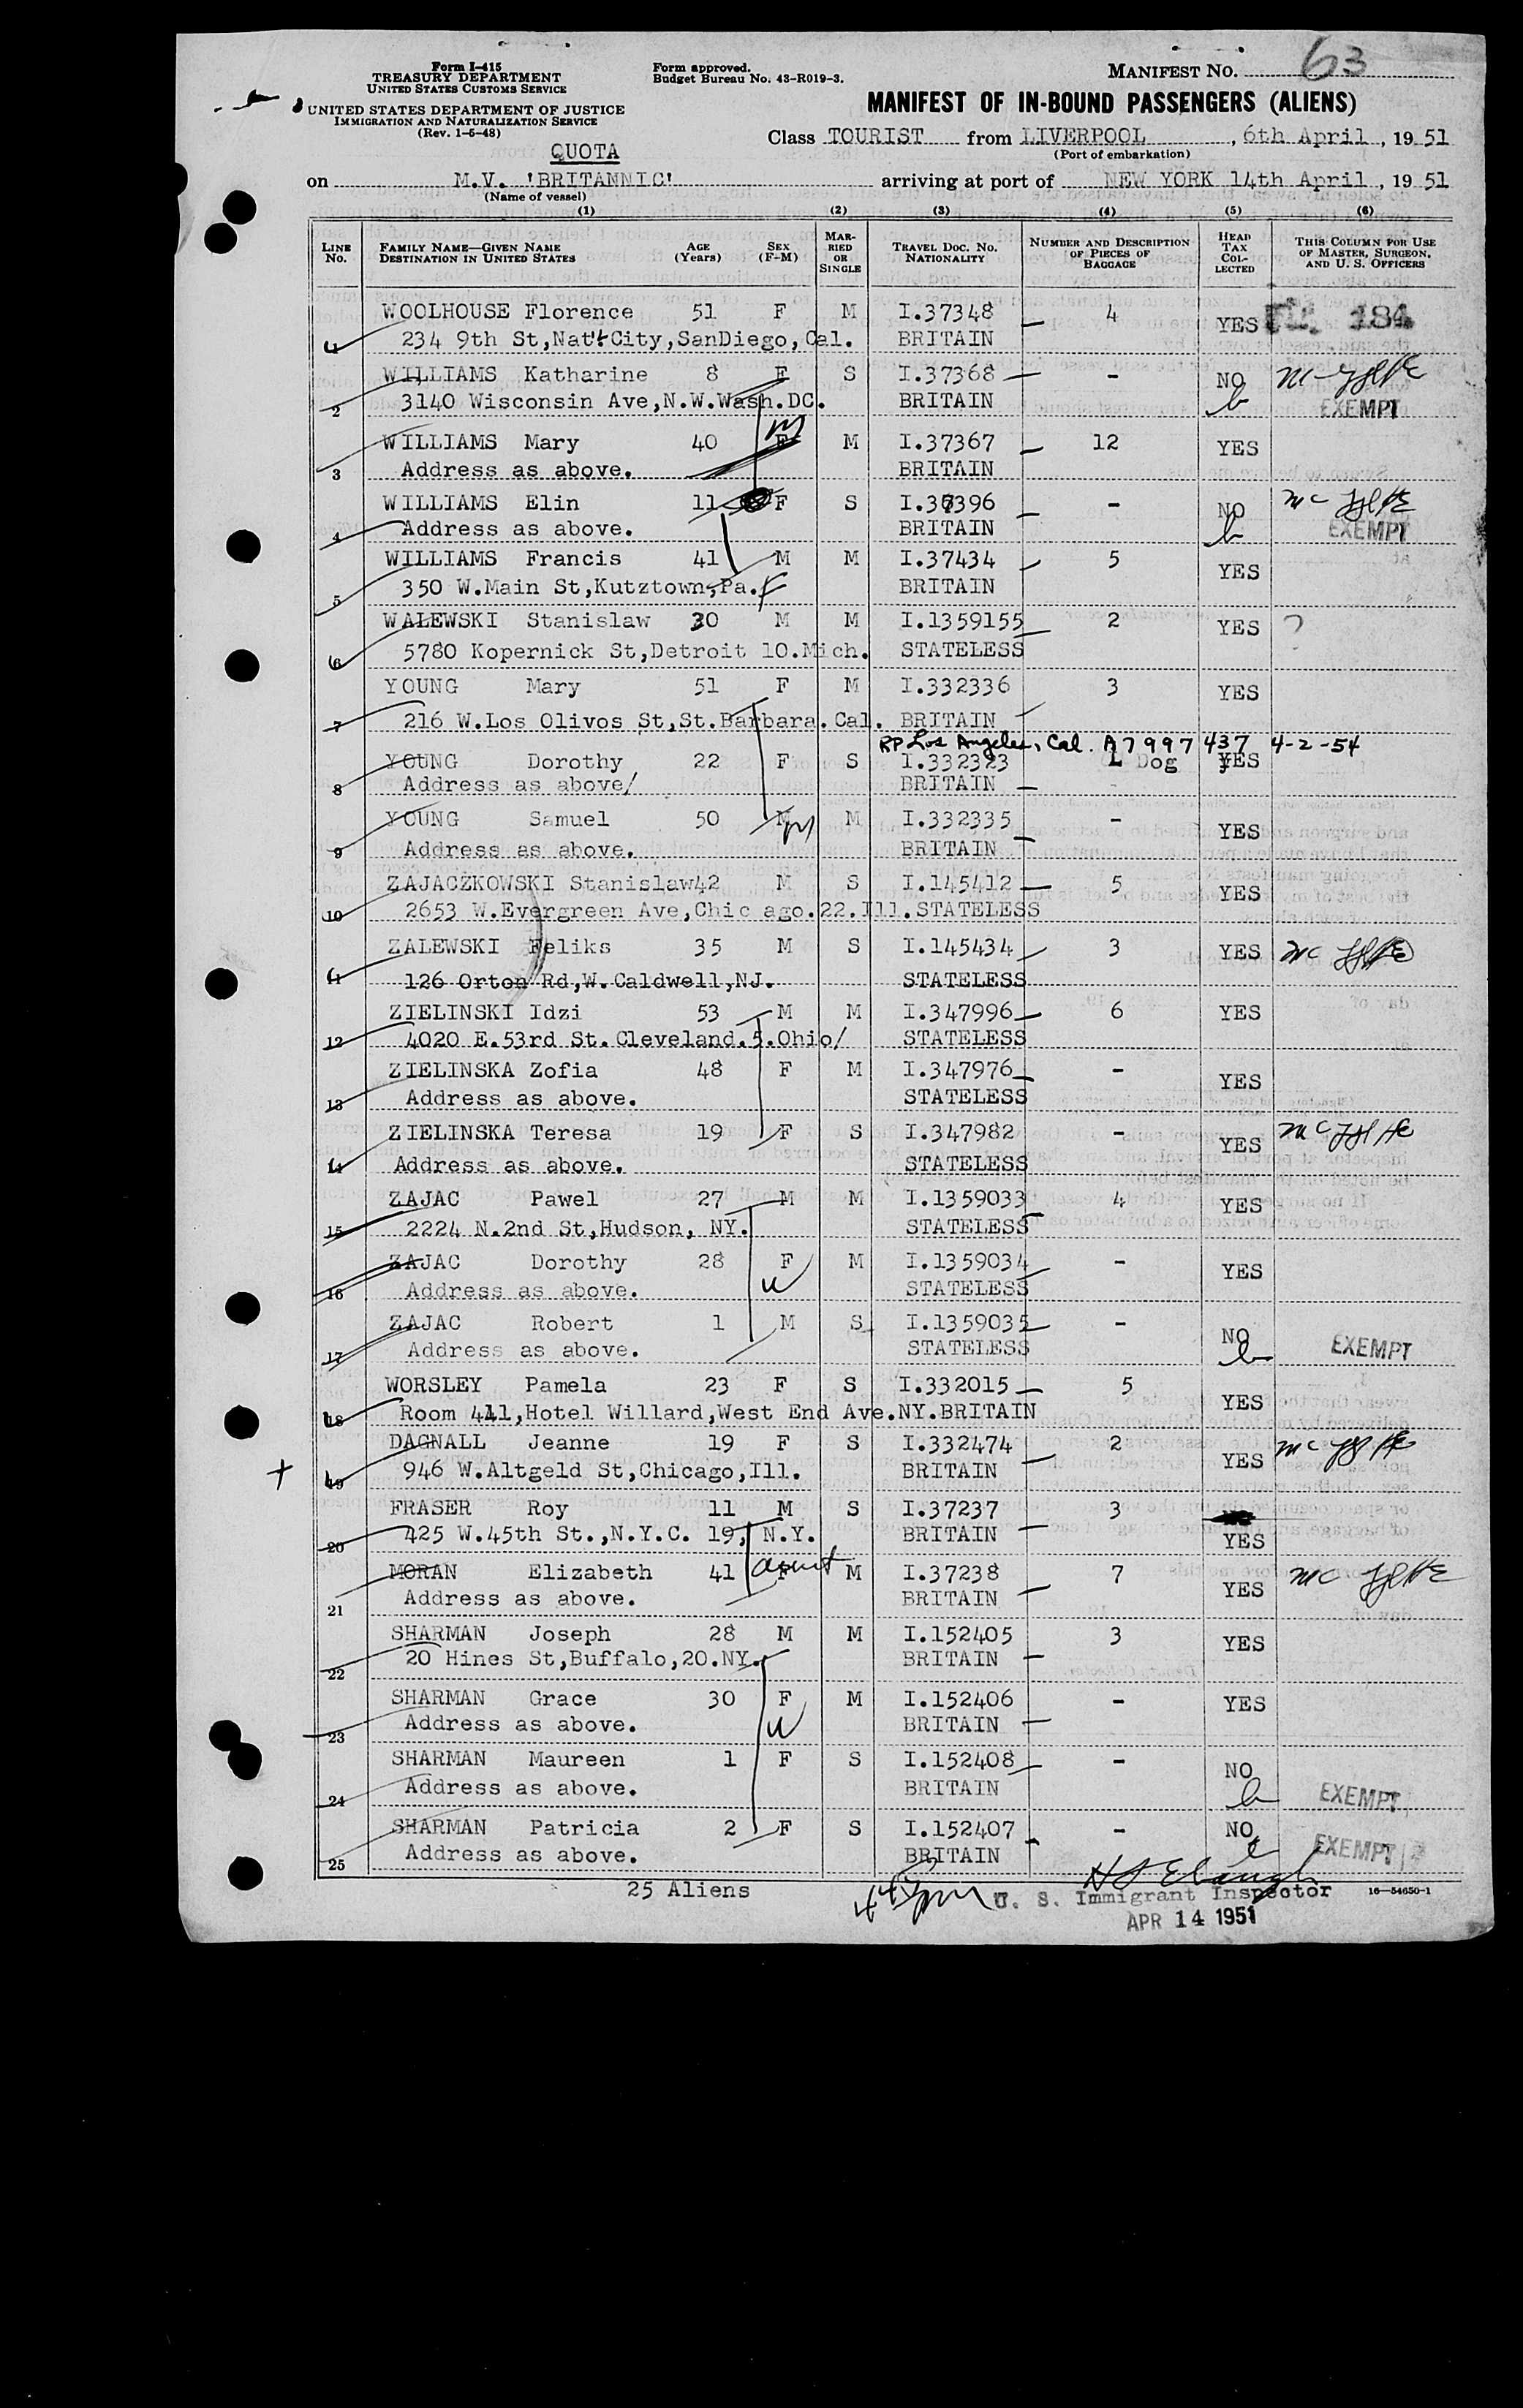 Form I-415
TREASURY DEPARTMENT
UNITED STATES CUSTOMS SERVICE
UNITED STATES DEPARTMENT OF JUSTICE
IMMIGRATION AND NATURALIZATION SERVICE
(Rev. 1-5-48)
Form approved.
Budget Bureau No. 43-R019-3.
MANIFEST NO. 63
MANIFEST OF IN-BOUND PASSENGERS (ALIENS)
Class TOURIST from LIVERPOOL, 6th April, 1951
(Port of embarkation)
QUOTA
on M.V. 'BRITANNIC' arriving at port of NEW YORK 14th April, 1951
(Name of vessel)
(1) (2) (3) (4) (5) (6)
LINE NO. FAMILY NAME—GIVEN NAME DESTINATION IN UNITED STATES AGE (Years) SEX (F-M) MARRIED OR SINGLE TRAVEL DOC. NO. NATIONALITY NUMBER AND DESCRIPTION OF PIECES OF BAGGAGE HEAD TAX COLLECTED THIS COLUMN FOR USE OF MASTER, SURGEON, AND U. S. OFFICERS
WOOLHOUSE Florence 51 F M I.37348 4 YES 184
1 234 9th St,Nat'l City,SanDiego,Cal. BRITAIN
WILLIAMS Katharine 8 F S I.37368 - NO
2 3140 Wisconsin Ave,N.W.Wash.DC. BRITAIN EXEMPT
WILLIAMS Mary 40 F M I.37367 12 YES
m
3 Address as above. BRITAIN
WILLIAMS Elin 11 F S I.37396 - NO
4 Address as above. BRITAIN EXEMPT
WILLIAMS Francis 41 M M I.37434 5 YES
5 350 W.Main St,Kutztown,Pa. BRITAIN
WALEWSKI Stanislaw 30 M M I.1359155 2 YES ?
6 5780 Kopernick St,Detroit 10.Mich. STATELESS
YOUNG Mary 51 F M I.332336 3 YES
7 216 W.Los Olivos St,St.Barbara.Cal. BRITAIN
RP Los Angeles, Cal. A7997437 4-2-54
YOUNG Dorothy 22 F S I.332323 1 Dog YES
8 Address as above/ BRITAIN
YOUNG Samuel 50 M M I.332335 - YES
9 Address as above. BRITAIN
ZAJACZKOWSKI Stanislaw 42 M S I.145412 5 YES
10 2653 W.Evergreen Ave,Chic ago.22.Ill. STATELESS
ZALEWSKI Feliks 35 M S I.145434 3 YES
11 126 Orton Rd,W.Caldwell,NJ. STATELESS
ZIELINSKI Idzi 53 M M I.347996 6 YES
12 4020 E.53rd St.Cleveland.5.Ohio/ STATELESS
ZIELINSKA Zofia 48 F M I.347976 - YES
13 Address as above. STATELESS
ZIELINSKA Teresa 19 F S I.347982 - YES
14 Address as above. STATELESS
ZAJAC Pawel 27 M M I.1359033 4 YES
15 2224 N.2nd St,Hudson, NY. STATELESS
ZAJAC Dorothy 28 F M I.1359034 - YES
16 Address as above. STATELESS
ZAJAC Robert 1 M S I.1359035 - NO
17 Address as above. STATELESS EXEMPT
WORSLEY Pamela 23 F S I.332015 5 YES
18 Room 411,Hotel Willard,West End Ave.NY. BRITAIN
DAGNALL Jeanne 19 F S I.332474 2 YES
19 946 W.Altgeld St,Chicago,Ill. BRITAIN
FRASER Roy 11 M S I.37237 3
20 425 W.45th St.,N.Y.C. 19, N.Y. BRITAIN YES
MORAN Elizabeth 41 F M I.37238 7 YES
aunt
21 Address as above. BRITAIN
SHARMAN Joseph 28 M M I.152405 3 YES
22 20 Hines St,Buffalo,20.NY. BRITAIN
SHARMAN Grace 30 F M I.152406 - YES
23 Address as above. BRITAIN
SHARMAN Maureen 1 F S I.152408 - NO
24 Address as above. BRITAIN EXEMPT
SHARMAN Patricia 2 F S I.152407 - NO
25 Address as above. BRITAIN EXEMPT
25 Aliens
U. S. Immigrant Inspector
16—54650-1
APR 14 1951